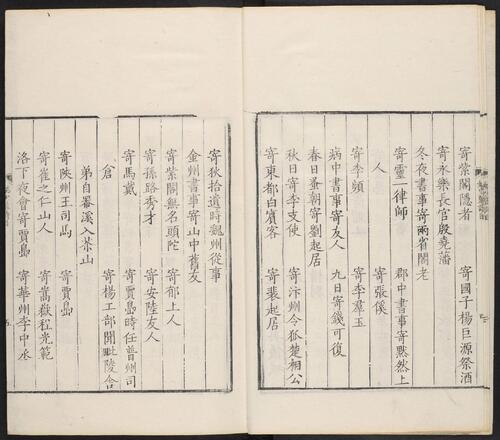 寄紫閣隱者　寄國子楊巨源祭酒
寄永樂長官殷堯藩
冬夜書事寄兩省閣老
寄靈一律師　郡中書事寄默然上
人　寄張傒
寄李頻　寄李羣玉
病中書事寄友人　九日寄錢可復
春日蚤朝寄劉起居
秋日寄李支使　寄汴州令狐楚相公
寄東都白賓客　寄裴起居
寄狄拾遺時魏州從事
金州書事寄山中舊友
寄紫閣無名頭陀　寄郁上人
寄孫路秀才　寄安陸友人
寄馬戴　寄賈島時任普州司
倉　寄楊工部聞毗陵舍
弟自罨溪入茶山
寄陝州王司馬　寄賈島
寄崔之仁山人　寄嵩嶽程光範
洛下夜會寄賈島　寄華州李中丞